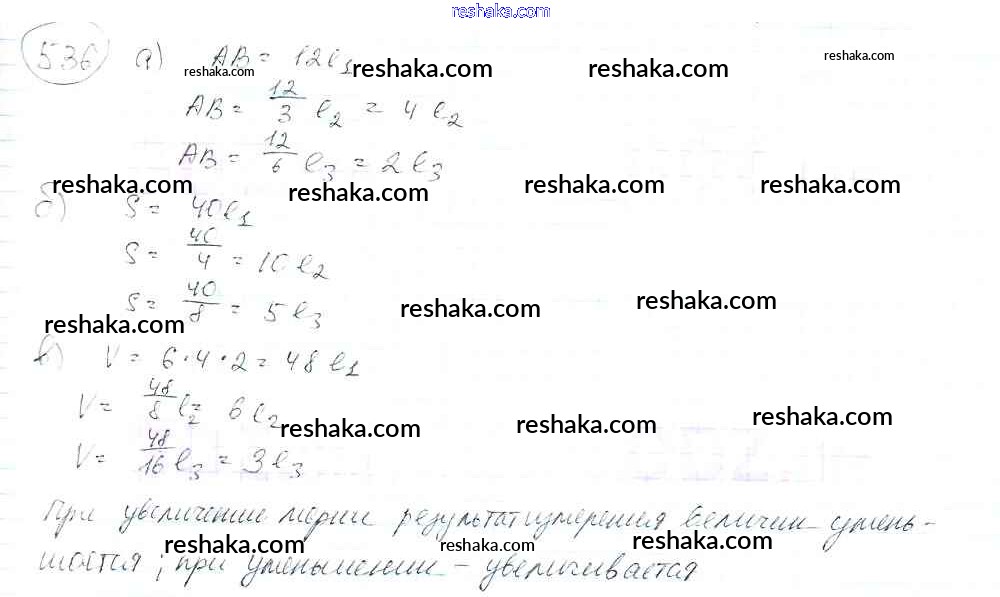 reshaka.com
536 а) AB = 12 l₁
reshaka.com reshaka.com reshaka.com reshaka.com
AB = 12/3 l₂ = 4 l₂
AB = 12/6 l₃ = 2 l₃
reshaka.com reshaka.com reshaka.com reshaka.com
б) S = 40 l₁
S = 40/4 = 10 l₂
S = 40/8 = 5 l₃
reshaka.com reshaka.com reshaka.com
в) V = 6 · 4 · 2 = 48 l₁
V = 48/8 l₂ = 6 l₂
reshaka.com reshaka.com reshaka.com
V = 48/16 l₃ = 3 l₃
При увеличение мерки результат измерения величин умень-
reshaka.com reshaka.com reshaka.com
шается; при уменьшении – увеличивается